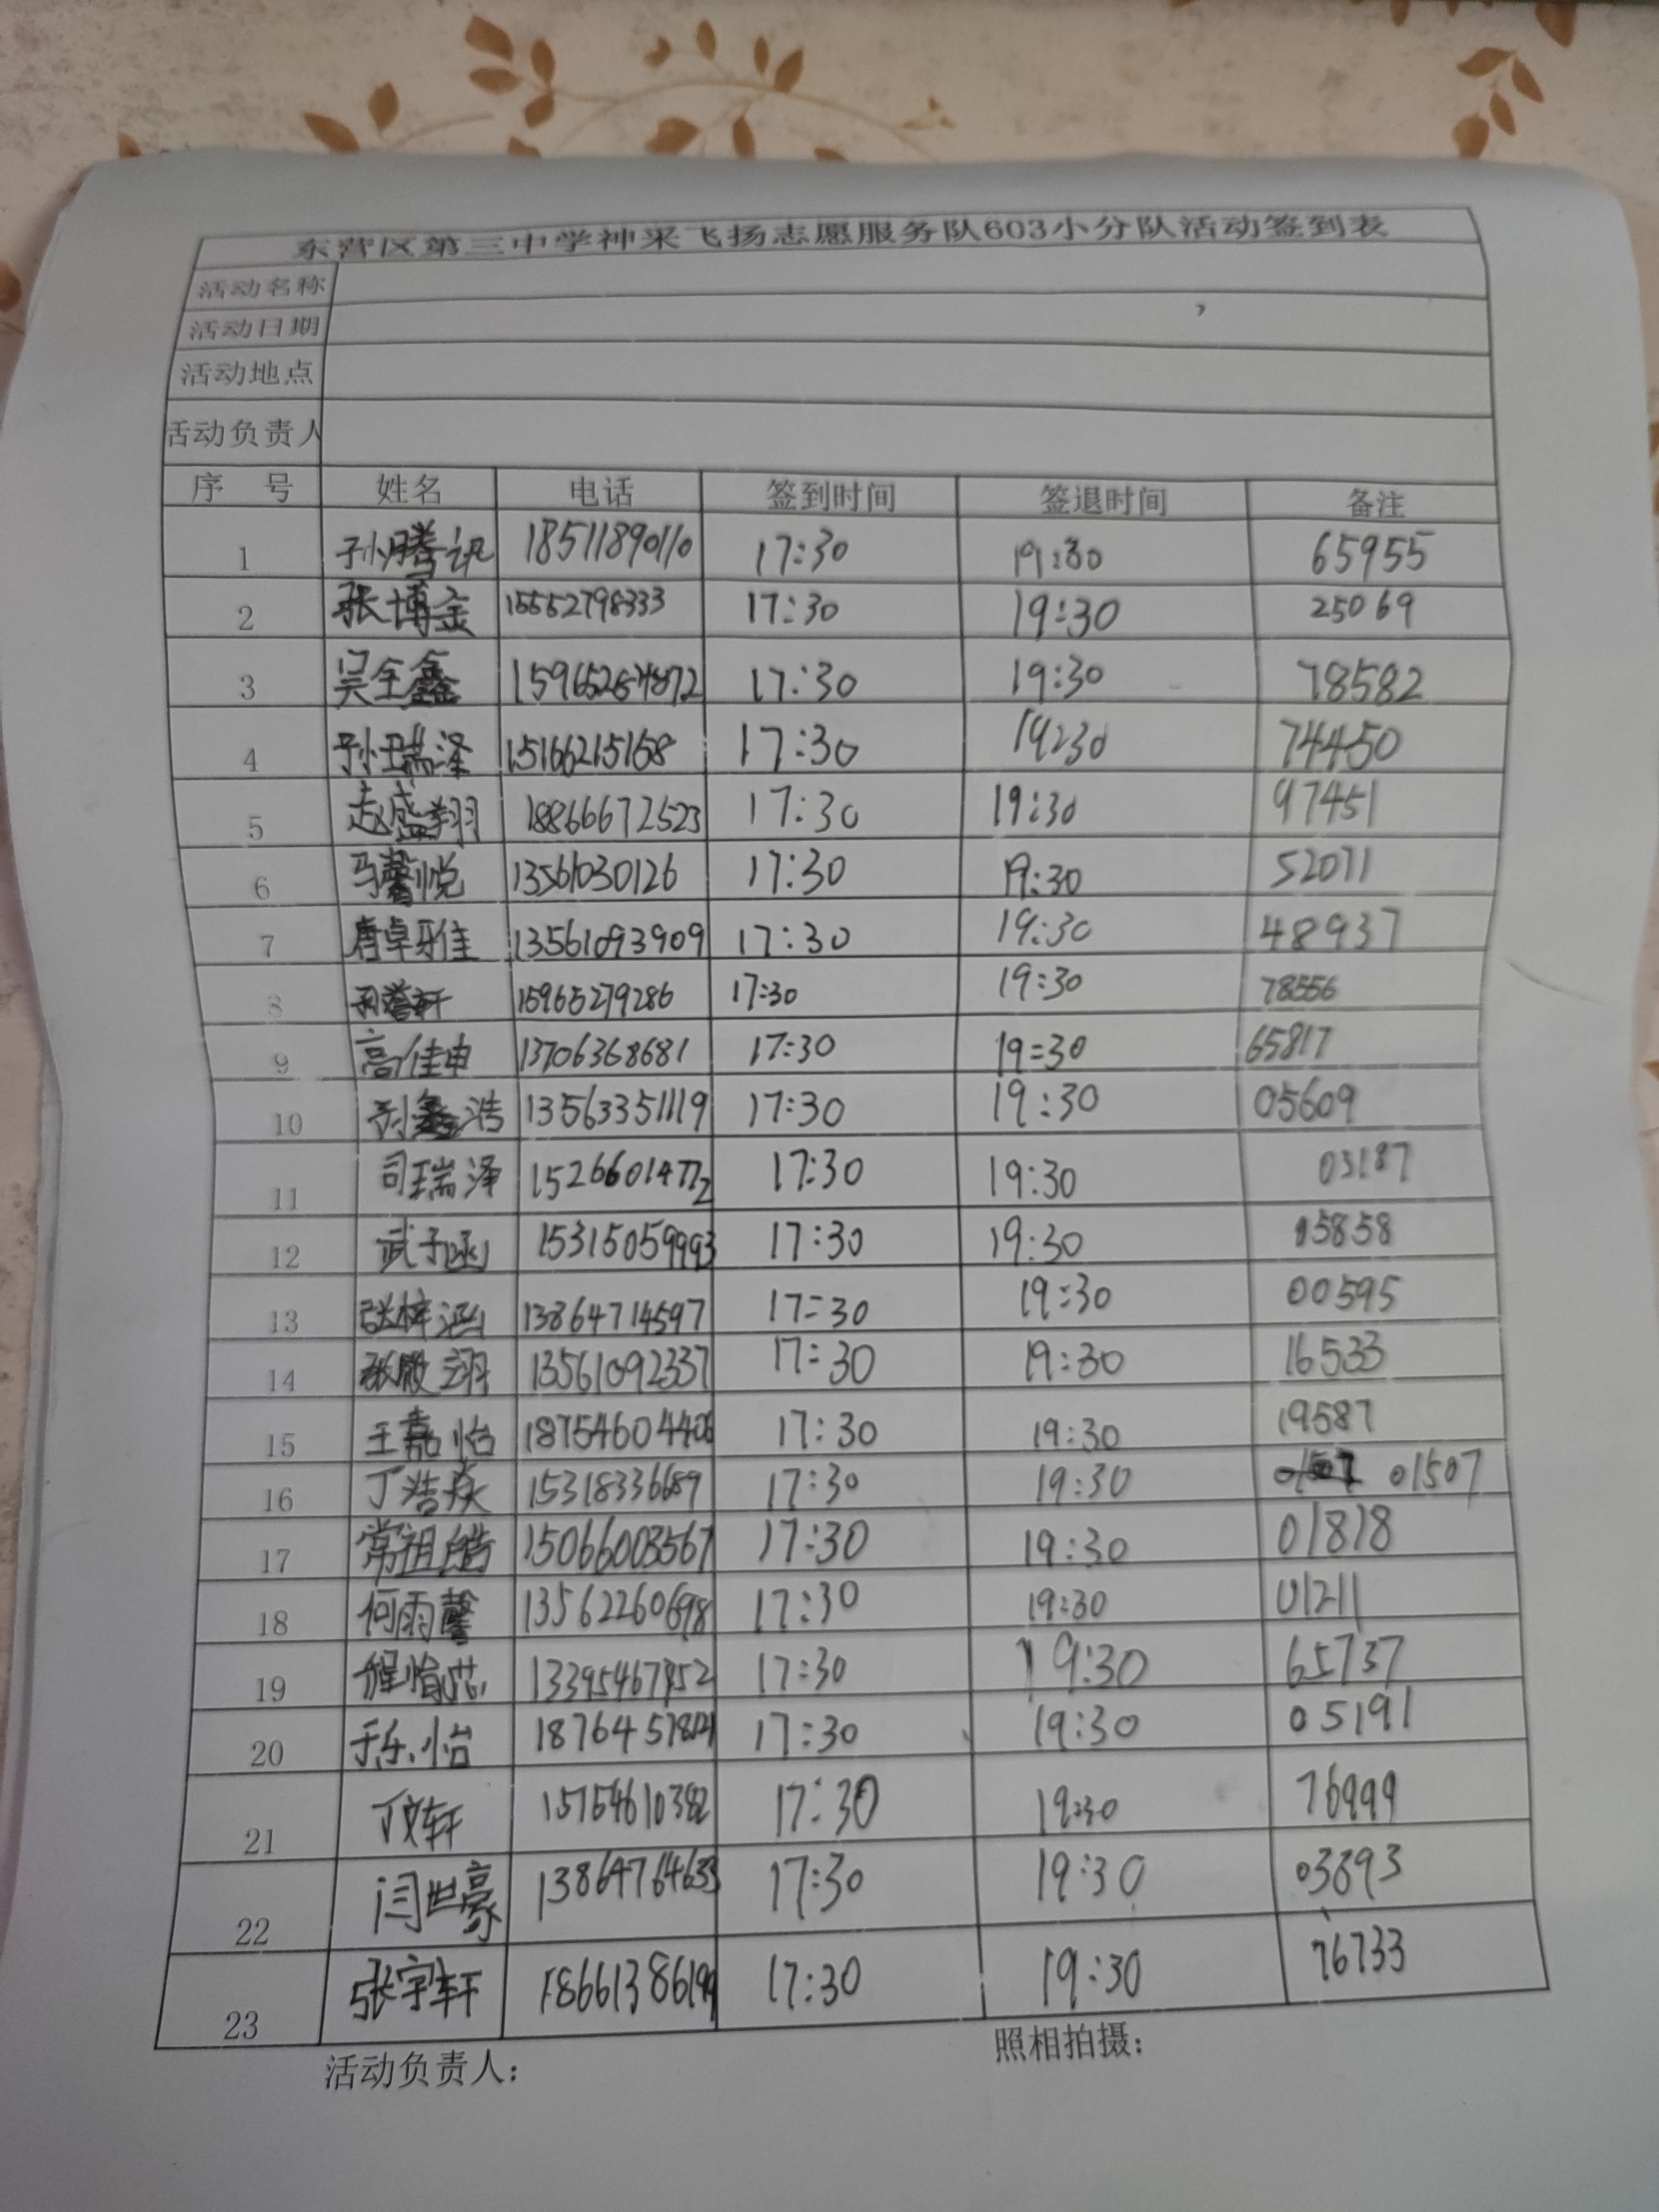 东营区第三中学神采飞扬志愿服务队603小分队活动签到表
活动名称
活动日期
活动地点
活动负责人
序 号 姓名 电话 签到时间 签退时间 备注
1 18511890110 17:30 19:30 65955
2 张博金 15552798333 17:30 19:30 25069
3 吴全鑫 17:30 19:30 78582
4 孙瑞泽 15166215168 17:30 19:30 74450
5 赵盛翔 18866672523 17:30 19:30 97451
6 马馨悦 13561030126 17:30 19:30 52071
7 唐卓雅佳 13561093909 17:30 19:30 48937
8 15965279286 17:30 19:30 78556
9 高佳申 13706368681 17:30 19:30 65817
10 刘鑫浩 13563351119 17:30 19:30 05609
11 司瑞泽 15266014772 17:30 19:30 03187
12 武子涵 15315059993 17:30 19:30 05858
13 张梓涵 13864714597 17:30 19:30 00595
14 13561092337 17:30 19:30 16533
15 王嘉怡 18754604406 17:30 19:30 19587
16 丁浩焱 15318336689 17:30 19:30 01507
17 常祖皓 15066003567 17:30 19:30 01818
18 何雨馨 13562260698 17:30 19:30 01211
19 程愉芯 17:30 19:30 65737
20 于乐怡 17:30 19:30 05191
21 丁文轩 15754610382 17:30 19:30 76999
22 闫世豪 13864764633 17:30 19:30 03893
23 张宇轩 17:30 19:30 76733
活动负责人: 照相拍摄: